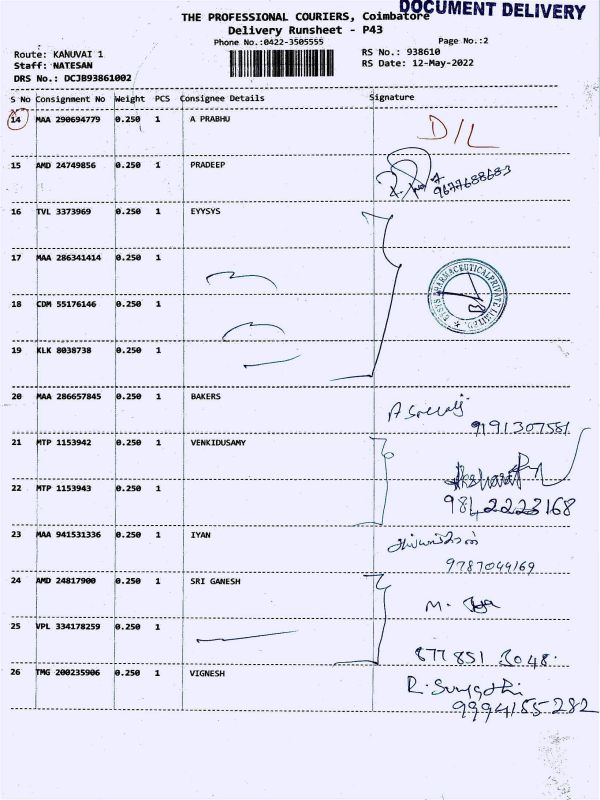 DOCUMENT DELIVERY
THE PROFESSIONAL COURIERS, Coimbatore
Delivery Runsheet - P43
Phone No.:0422-3505555
Page No.:2
Route: KANUVAI 1
RS No.: 938610
Staff: NATESAN
RS Date: 12-May-2022
DRS No.: DCJB93861002
S No Consignment No Weight PCS Consignee Details Signature
14 MAA 290694779 0.250 1 A PRABHU D/L
15 AMD 24749856 0.250 1 PRADEEP
9677688683
16 TVL 3373969 0.250 1 EYYSYS
17 MAA 286341414 0.250 1
18 CDM 55176146 0.250 1
19 KLK 8038738 0.250 1
20 MAA 286657845 0.250 1 BAKERS
9191307581
21 MTP 1153942 0.250 1 VENKIDUSAMY
22 MTP 1153943 0.250 1
9842223168
23 MAA 941531336 0.250 1 IYAN
9787044169
24 AMD 24817900 0.250 1 SRI GANESH
25 VPL 334178259 0.250 1
877851 3048
26 TMG 200235906 0.250 1 VIGNESH
9994155282